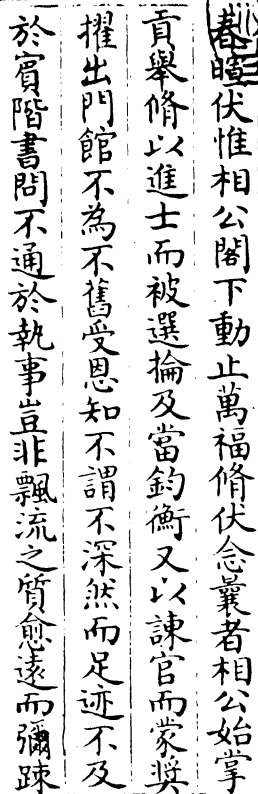 春暄伏惟相公閤下動止萬福脩伏念曩者相公始掌
貢舉脩以進士而被選掄及當鈞衡又以諫官而蒙奨
擢出門館不為不舊受恩知不謂不深然而足迹不及
於賓階書問不通於執事豈非飄流之質愈遠而彌踈